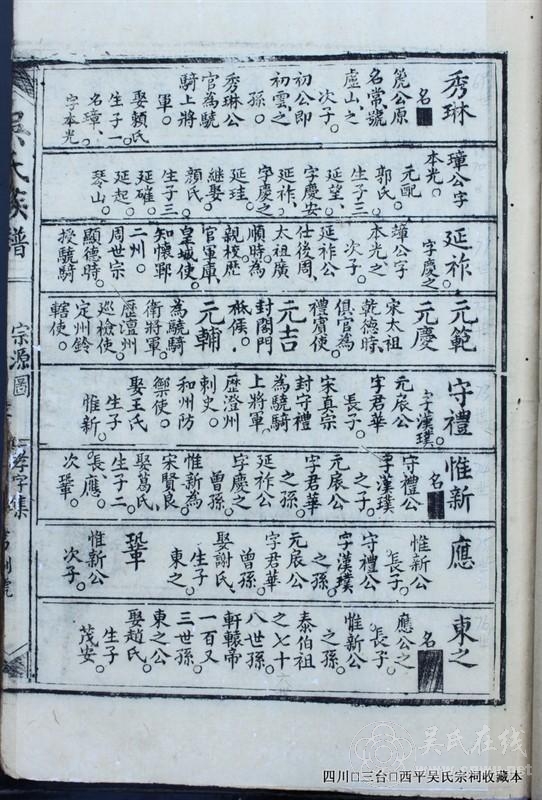 秀琳
名
箎公原
名常號
虛山之
次子。
初公即
初雲之
孫。
秀琳公
官為驍
騎上將
軍。
娶賴氏
生子一
名璋。
字本光
璋公字
本光。
元配
郭氏。
生子三
延望、
字慶安
延祚、
字慶之
延珪。
繼娶
顏氏
生子三
延㩁、
延起。
琴山。
延祚
字慶之
璋公字
本光之
次子。
延祚公
仕後周、
太祖廣
順時為
親校歷
官軍庫、
皇城使。
知懷耶
二州。
周世宗
顯德時。
授驍騎
元範
元慶
宋太祖
乾德時、
俱官為
禮賓使。
元吉
封閤門
祗候。
元輔
為驍騎
衛將軍。
歷澶州
巡檢使。
定州鈐
轄使。
守禮
字漢璞。
元扆公
字君華
長子。
宋真宗
封守禮
為驍騎
上將軍、
歷澄州
刺史。
和州防
禦使。
娶王氏
生子一
惟新。
惟新
名
守禮公
字漢璞
之子。
元扆公
字君華
之孫。
延祚公
字慶之
曾孫。
惟新為
宋賢良。
娶葛氏、
生子二
長應。
次鞏。
應
惟新公
長子。
守禮公
字漢璞
之孫。
元扆公
字君華
曾孫。
娶謝氏、
生子一
東之。
鞏
惟新公
次子。
東之
名
應公之
長子。
惟新公
之孫。
泰伯祖
之七十
八世孫。
軒轅帝
一百又
三世孫。
東之公
娶趙氏。
生子一
茂安。
吳氏族譜
宗源圖
孝字集
吴氏在线
四川□三台□西平吴氏宗祠收藏本